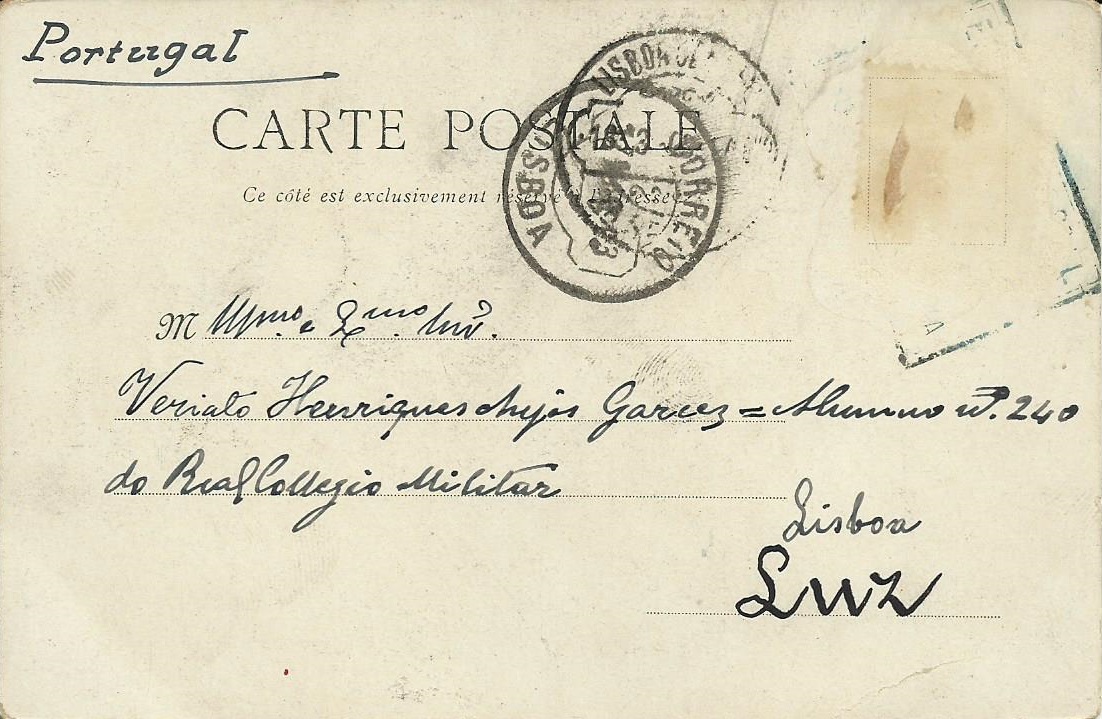 Portugal
CARTE POSTALE
Ce côté est exclusivement réservé à l'adresse
LISBOA
CORREIO
LISBOA
M Illmo. e Exmo. Snr.
Veriato Henriques Anjos Garcez = Alumno nº. 240
do Real Collegio Militar
Lisboa
Luz